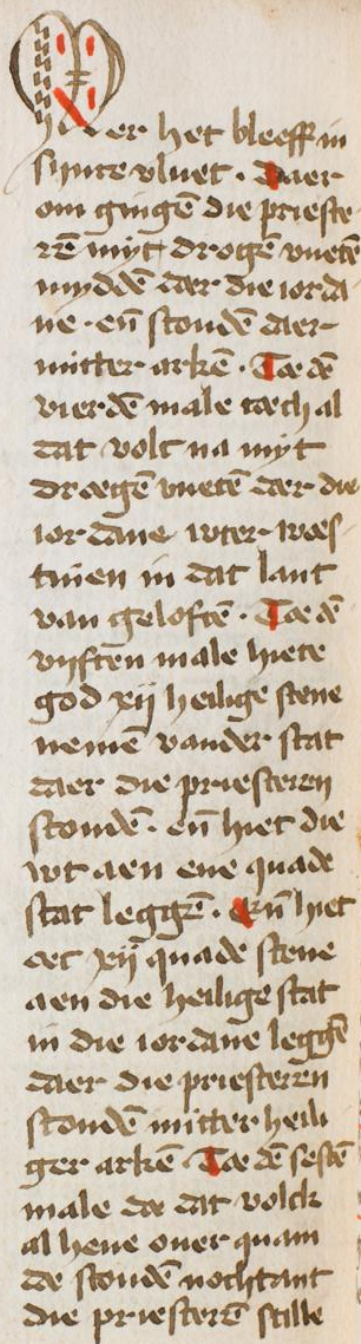 mer het bleeff in
synre vluet . Daer
om gingē die prieste
rē myt drogē vuetē
myddē doer die iorda
ne . eñ stondē daer
mitter arkē . Toe dē
vierdē male toech al
dat volc na myt
droegē vuetē doer die
iordane wter woes
tinen in dat lant
van geloftē . Toe dē
vijften male hiete
god xij heilige stene
nemē vander stat
daer die priesteren
stondē . eñ hiet die
wt aen ene quade
stat leggē . Eñ hiet
oec xij quade stene
aen die heilige stat
in die iordane leggē
daer die priesteren
stondē mitter heili
ger arkē . Toe dē sestē
male doe dat volck
al hene ouer quam
doe stondē nochtant
die priesterē stille